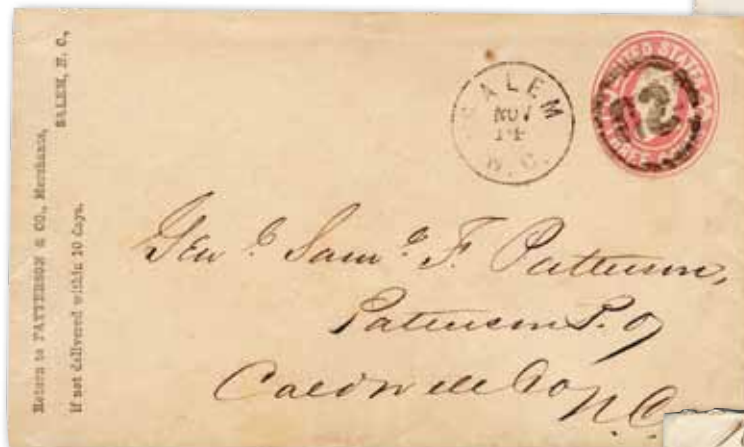 Return to PATTERSON & CO., Merchants,
SALEM, N. C.,
If not delivered within 10 days.
SALEM
NOV
14
N. C.
UNITED STATES
Genl. Saml. F. Patterson,
Patterson P. O
Caldwell Co
N. C.